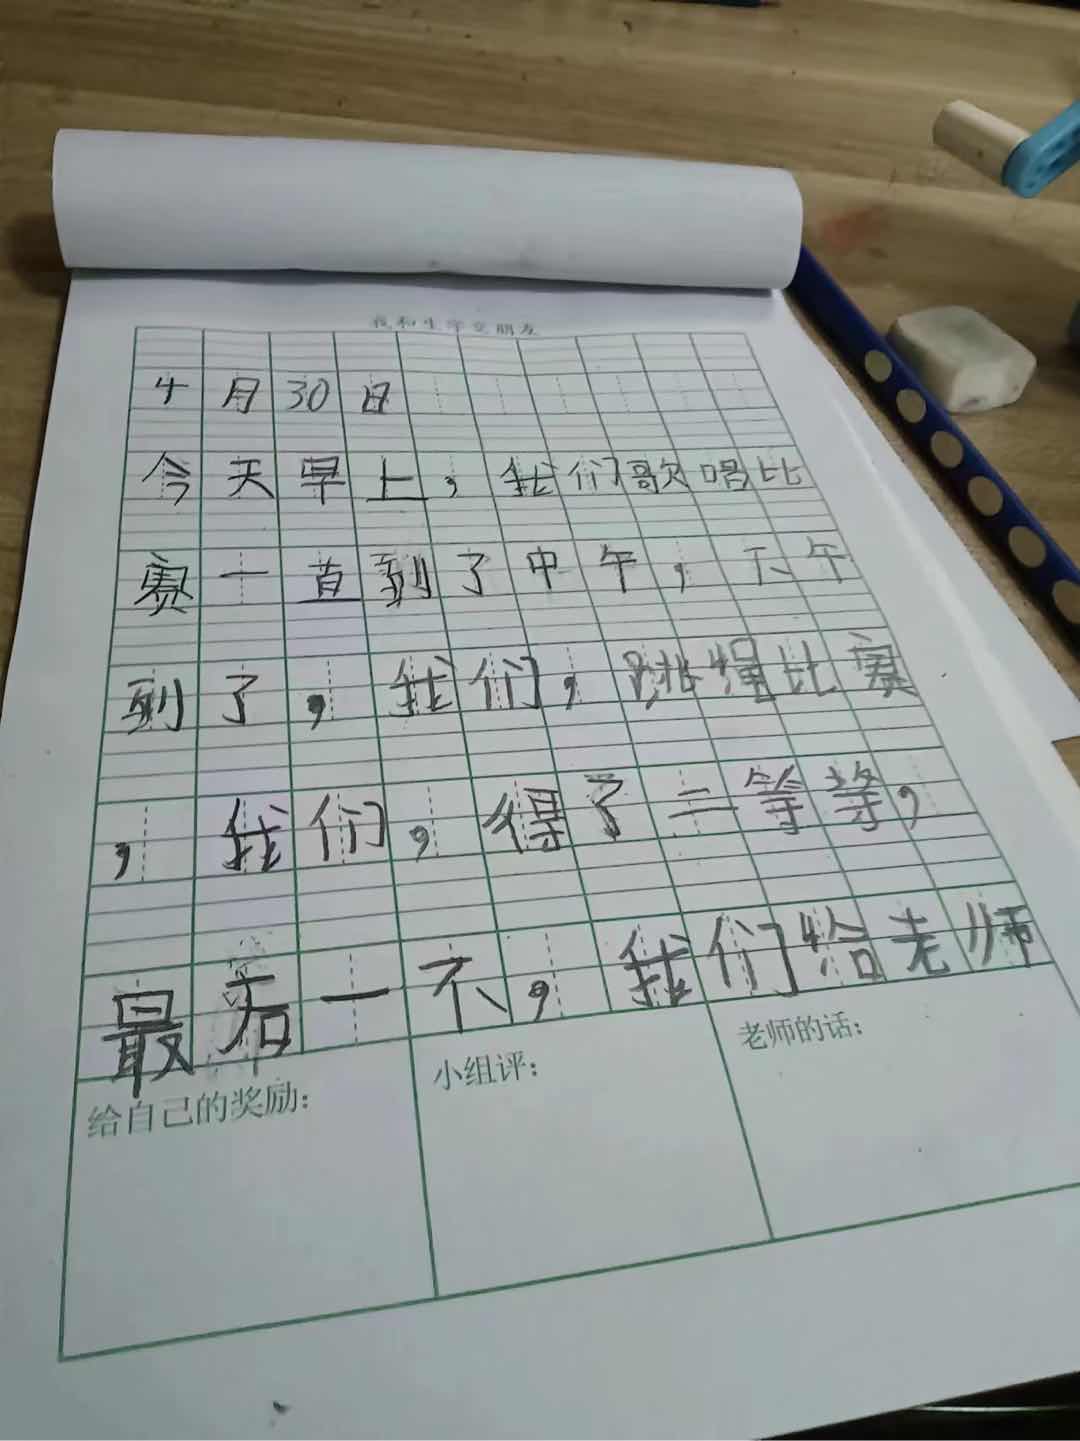 我和生字交朋友
4月30日
今天早上，我们歌唱比
赛一直到了中午，下午
到了，我们，跳绳比赛
，我们，得了二等等，
最后一不，我们给老师
给自己的奖励：
小组评：
老师的话：